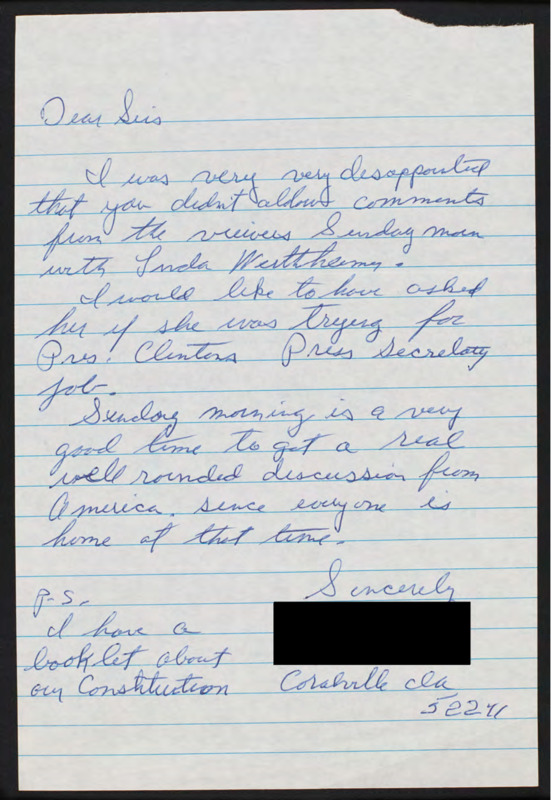 Dear Sirs
I was very very desappointed
that you didn't allow comments
from the viewers Sunday morn
with Linda Wertheimer.
I would like to have asked
her if she was trying for
Pres. Clintons Press Secretary
job.
Sunday morning is a very
good time to get a real
well rounded discussion from
America. since everyone is
home at that time.
Sincerely
P.S.
I have a
booklet about
our Constitution
Coralville Ia
52241